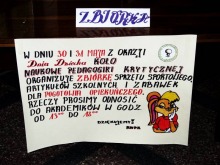 ZBIÓRKA
W DNIU 30 I 31 MAJA Z OKAZJI
Dnia Dziecka KOŁO
NAUKOWE PEDAGOGIKI KRYTYCZNEJ
ORGANIZUJE ZBIÓRKĘ SPRZĘTU SPORTOWEGO,
ARTYKUŁÓW SZKOLNYCH I ZABAWEK
DLA POGOTOWIA OPIEKUŃCZEGO.
RZECZY PROSIMY ODNOSIĆ
DO AKADEMIKÓW W GODZ.
DZIĘKUJEMY!